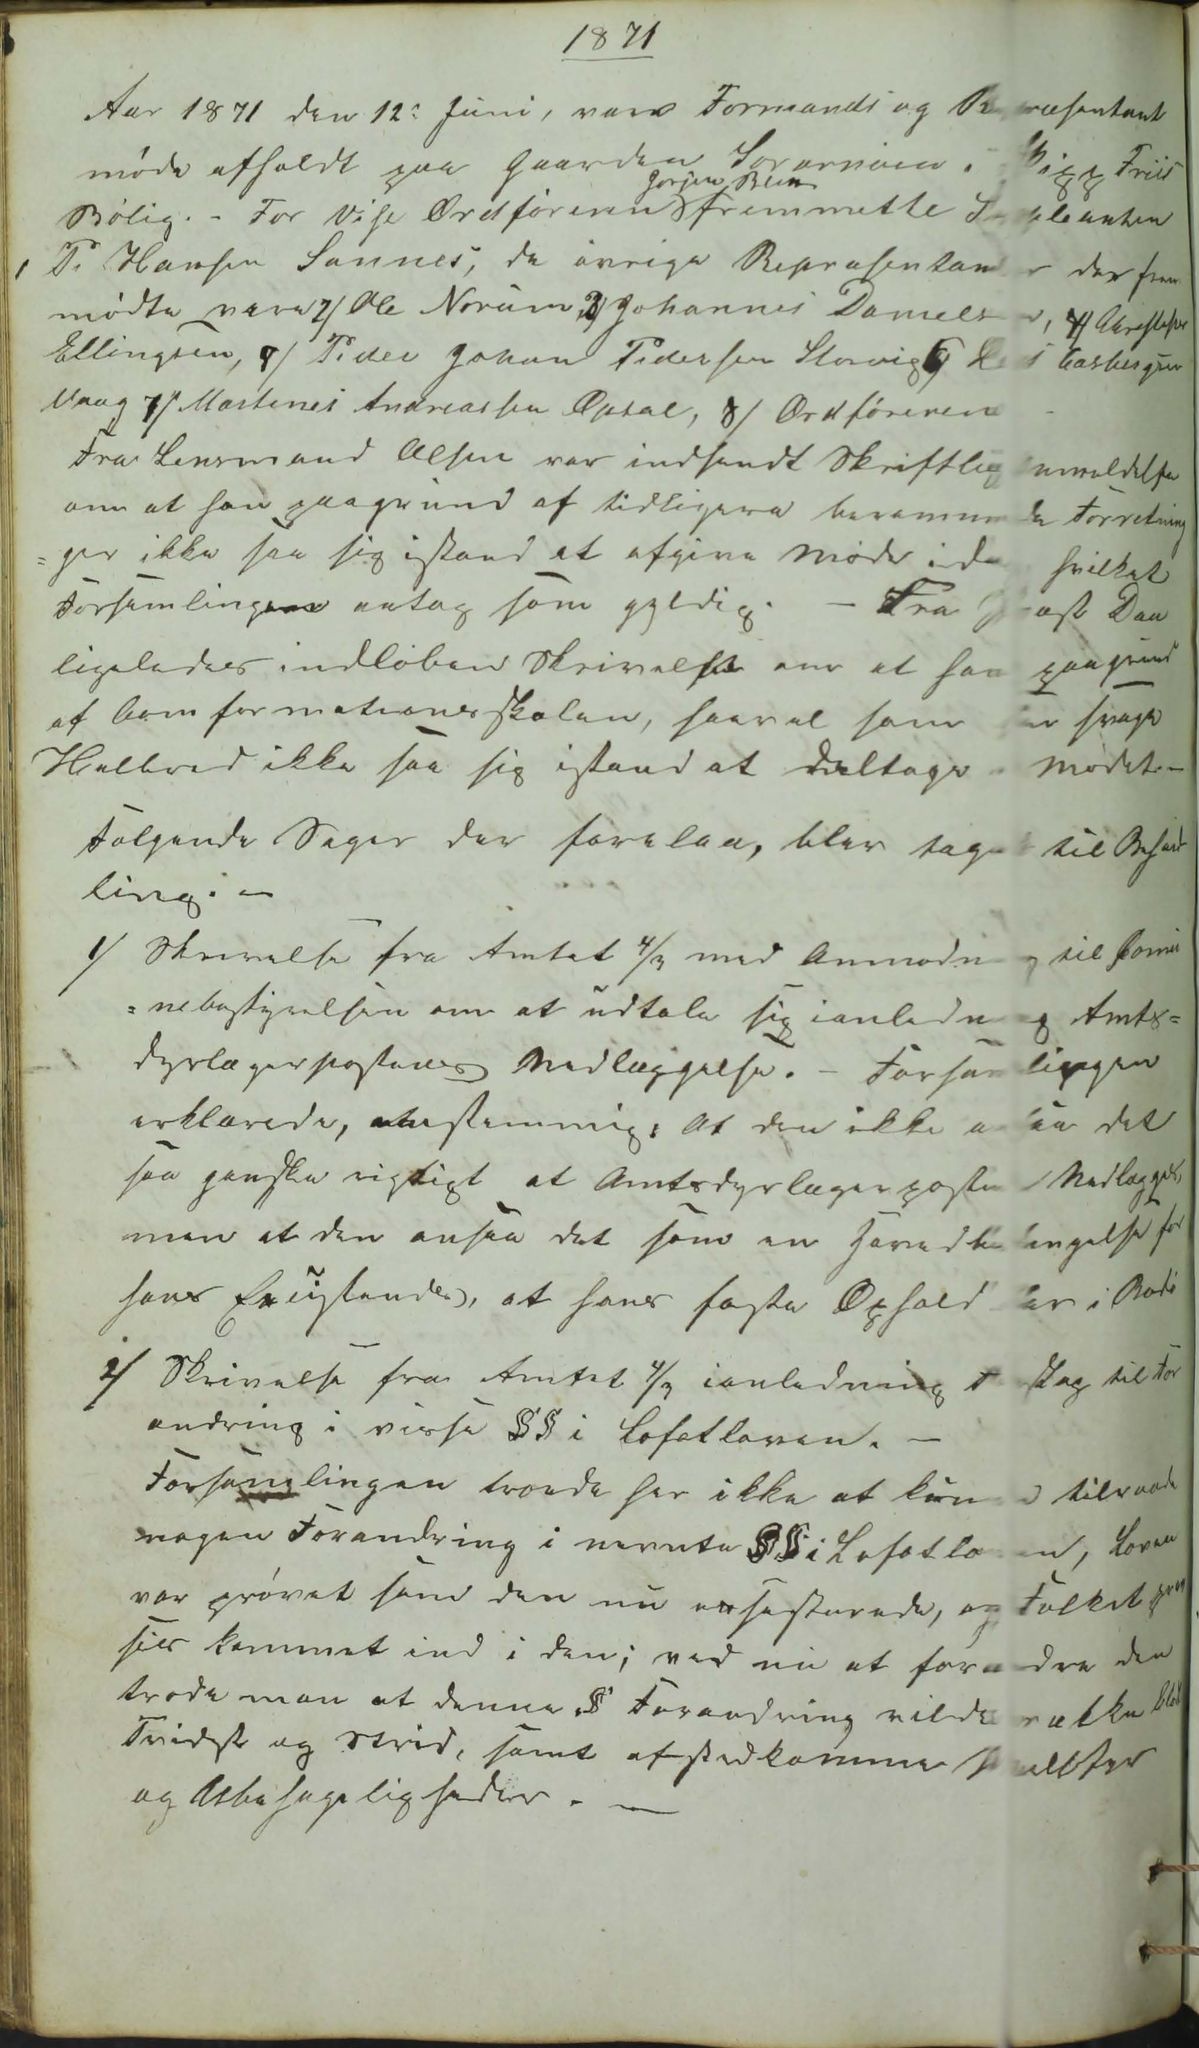 1871
Aar 1871 den 12: Juni, være Formands og Representant
møde afholdt paa Gaarden i Kipp Friis
Jørgen Blix
Bølig. - For Vise Ordføreren fremmette Supleanten
1 P. Hansen Sannes, de øvrige Representanter der frem
mødte være 2/ Ole Norum, 3/ Johannes Danielsen, 4/ Christopher
Ellingsen, 5/ Peder Johan Pedersen Storvig 6/
Vaag 7/ Martines Andreassen Opsal, 8/ Ordføreren -
Fra Lensmand Olsen var indsendt Skriftlig anmeldelse
om at han paagrund af tidligere berammede Forretning
=ger ikke saa sig istand at afgive Møde idag hvilket
Forsamlingen antog som gyldig. - Fra Daa
ligeledes indløben Skrivelse om at han paagrund
af Comformationsskolen, saavel som sin svage
Helbred ikke saa sig istand at deltage i Mødet. -
Følgende Sager der forelaa, blev taget til Behand
ling. -
1/ Skrivelse fra Amtet 4/3 med Anmodning til Comu
=nebestyrelsen om at udtale sig ianledning Amts=
dyrlægerpostens Nedlæggelse. - Forsamlingen
erklærede, enstemmig: At den ikke ansaa det
saa ganske rigtigt at Amtsdyrlægerposten Nedlægges,
men at den ansaa det som en Hovedbetingelse for
hans Exsistendes, at hans faste Ophold er i Bodø
2/ Skrivelse fra Amtet 4/3 ianledning Forslag til For
andring i visse §§ i Lofotloven. -
Forsamlingen troede her ikke at kunne tilraade
nogen Forandring i nevnte §§ i Lofotloven, Loven
var prøvet som den nu exsisterede, og Folket
kommet ind i den; ved nu at forandre den
trode man at denne § Forandring vilde vække blot
Tvidst og Strid, samt afstedkomme
og Ubehageligheder. -